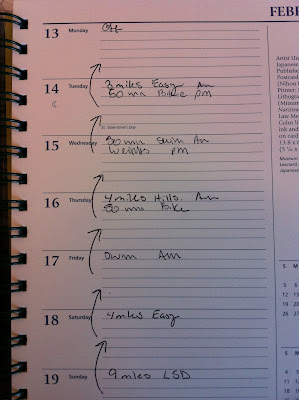 FEBR
13 Monday
Off
14 Tuesday
3 miles Easy Am
50 min Bike pm
St. Valentine's Day
15 Wednesday
50 min Swim Am
Weights pm
16 Thursday
4 miles Hills. Am
50 min Bike
17 Friday
Swim Am
18 Saturday
4 miles Easy
19 Sunday
9 miles LSD
Artist Un
Japanese
Publisher
Postcard
(Nihon
Printer:
Lithogra
(Mitsum
Narrow
Law Me
Color li
ink and
on card
13.8 x
(5 ⁷⁄₁₆ x
Museum
Leonard
Japanese
S M
5 6
12 13
19 20
26 27
S M
4 5
11 12
18 19